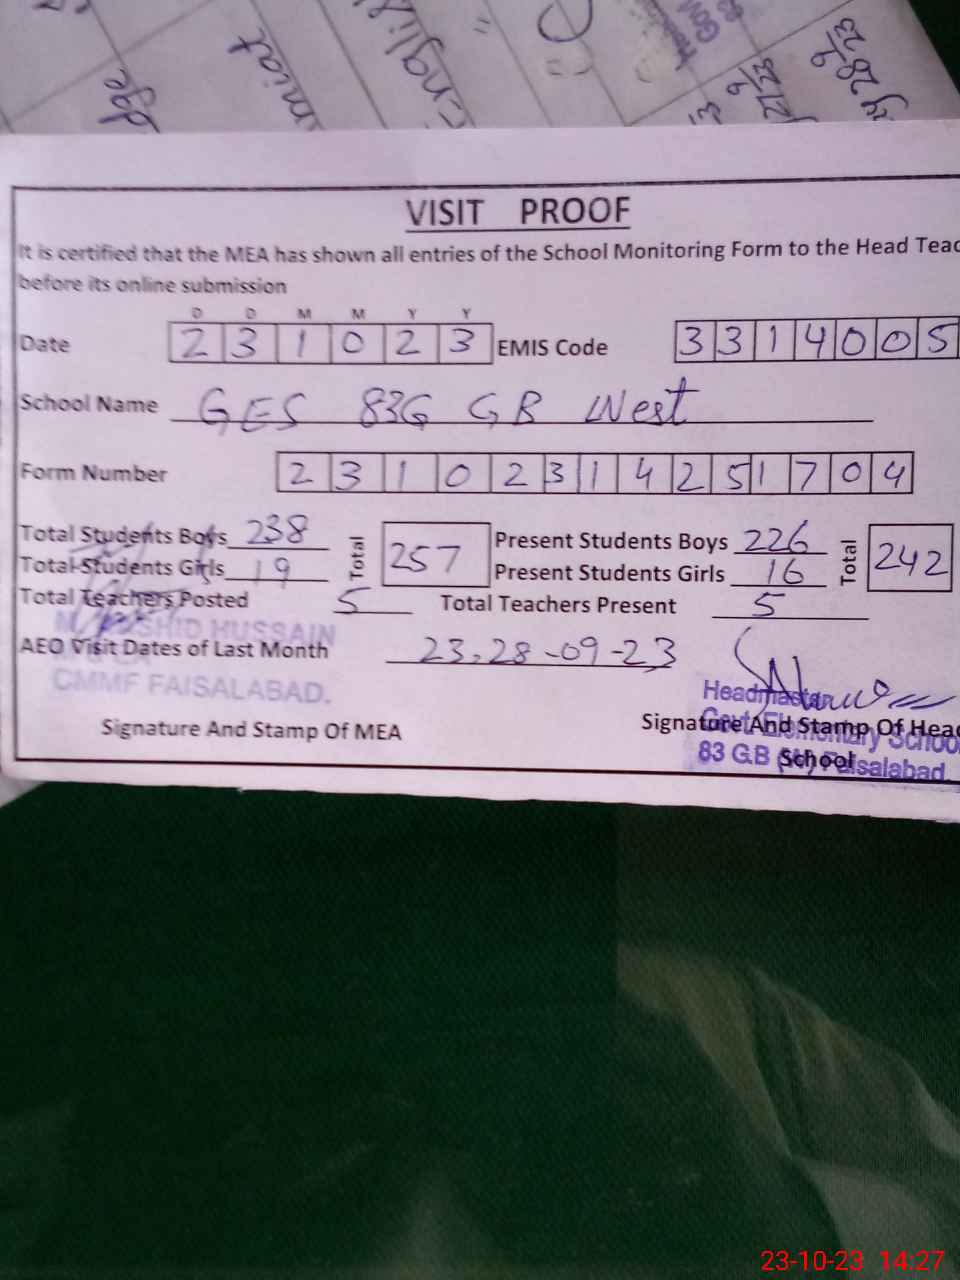 dge
miat
English
"
21/9/23
28/9/23
VISIT PROOF
It is certified that the MEA has shown all entries of the School Monitoring Form to the Head Teac
before its online submission
D D M M Y Y
Date 2 3 1 0 2 3 EMIS Code 3 3 1 4 0 0 5
School Name GES 83G GB West
Form Number 2 3 1 0 2 3 1 4 2 5 1 7 0 4
Total Students Boys 238 Total 257 Present Students Boys 226 Total 242
Total Students Girls 19 Present Students Girls 16
Total Teachers Posted 5 Total Teachers Present 5
SHID HUSSAIN
AEO Visit Dates of Last Month 23,28-09-23
CMMF FAISALABAD.
Headmaster
Signature And Stamp Of MEA Signature And Stamp Of Head
Govt. Elementary School
School
83 G.B (W) Faisalabad
23-10-23 14:27